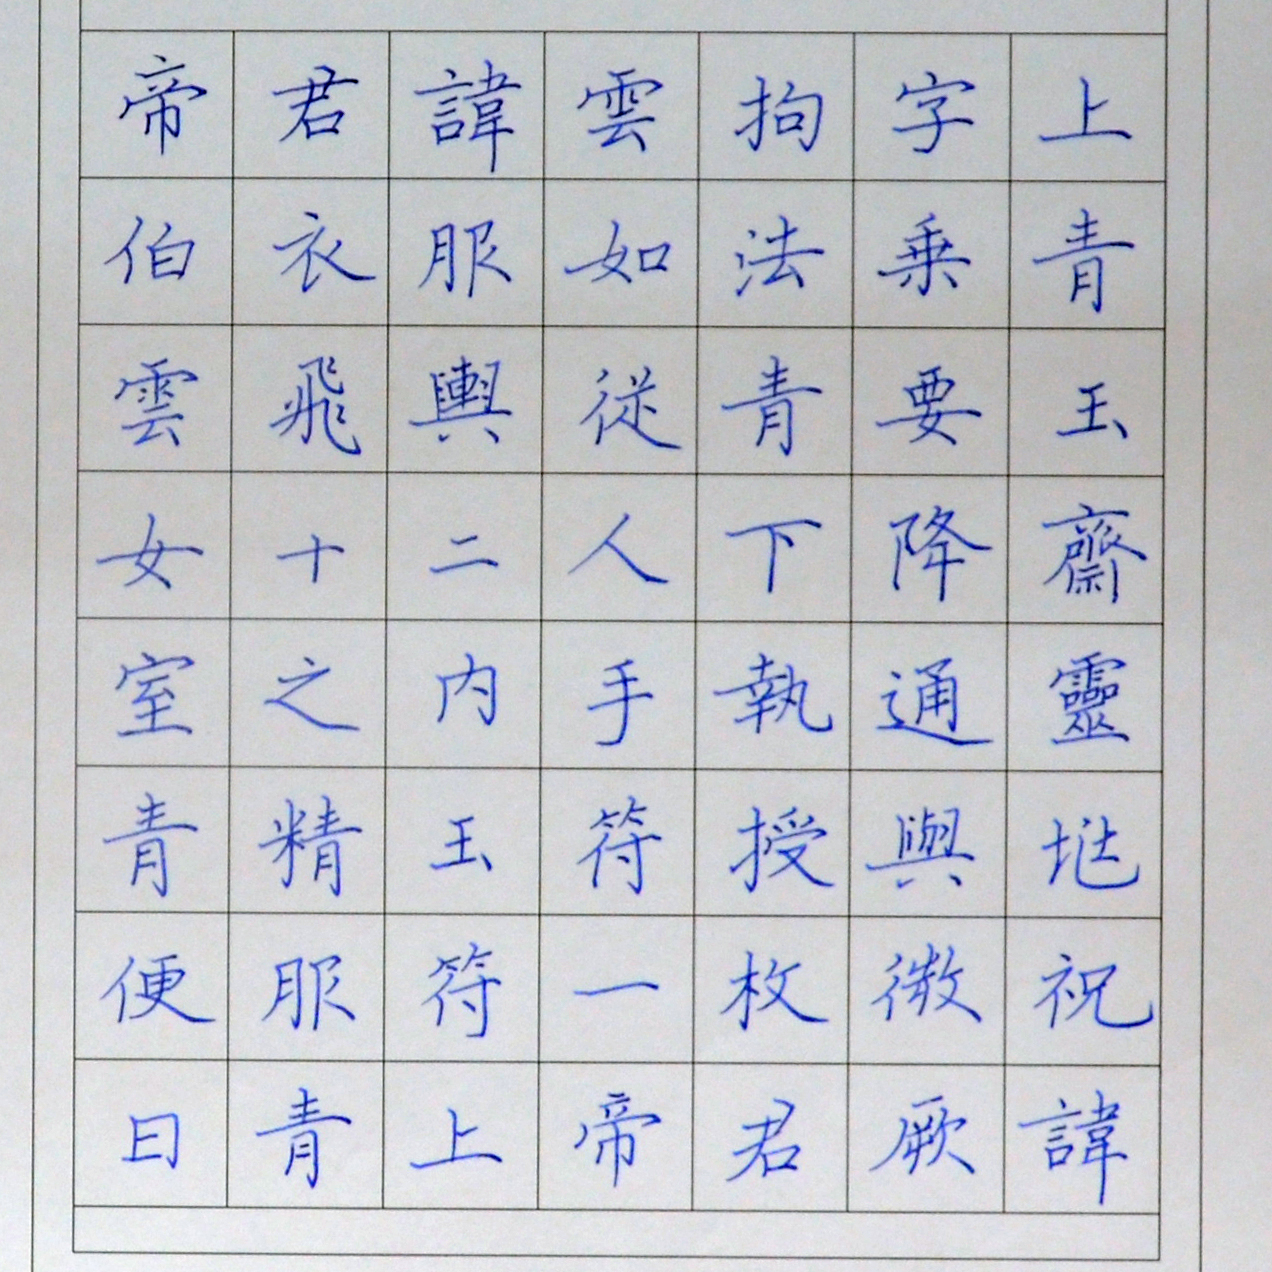 帝君諱雲拘字上
伯衣服如法乗青
雲飛輿從青要玉
女十二人下降齋
室之内手執通靈
青精玉符授與
便服符一枚微祝
曰青上帝君厥諱